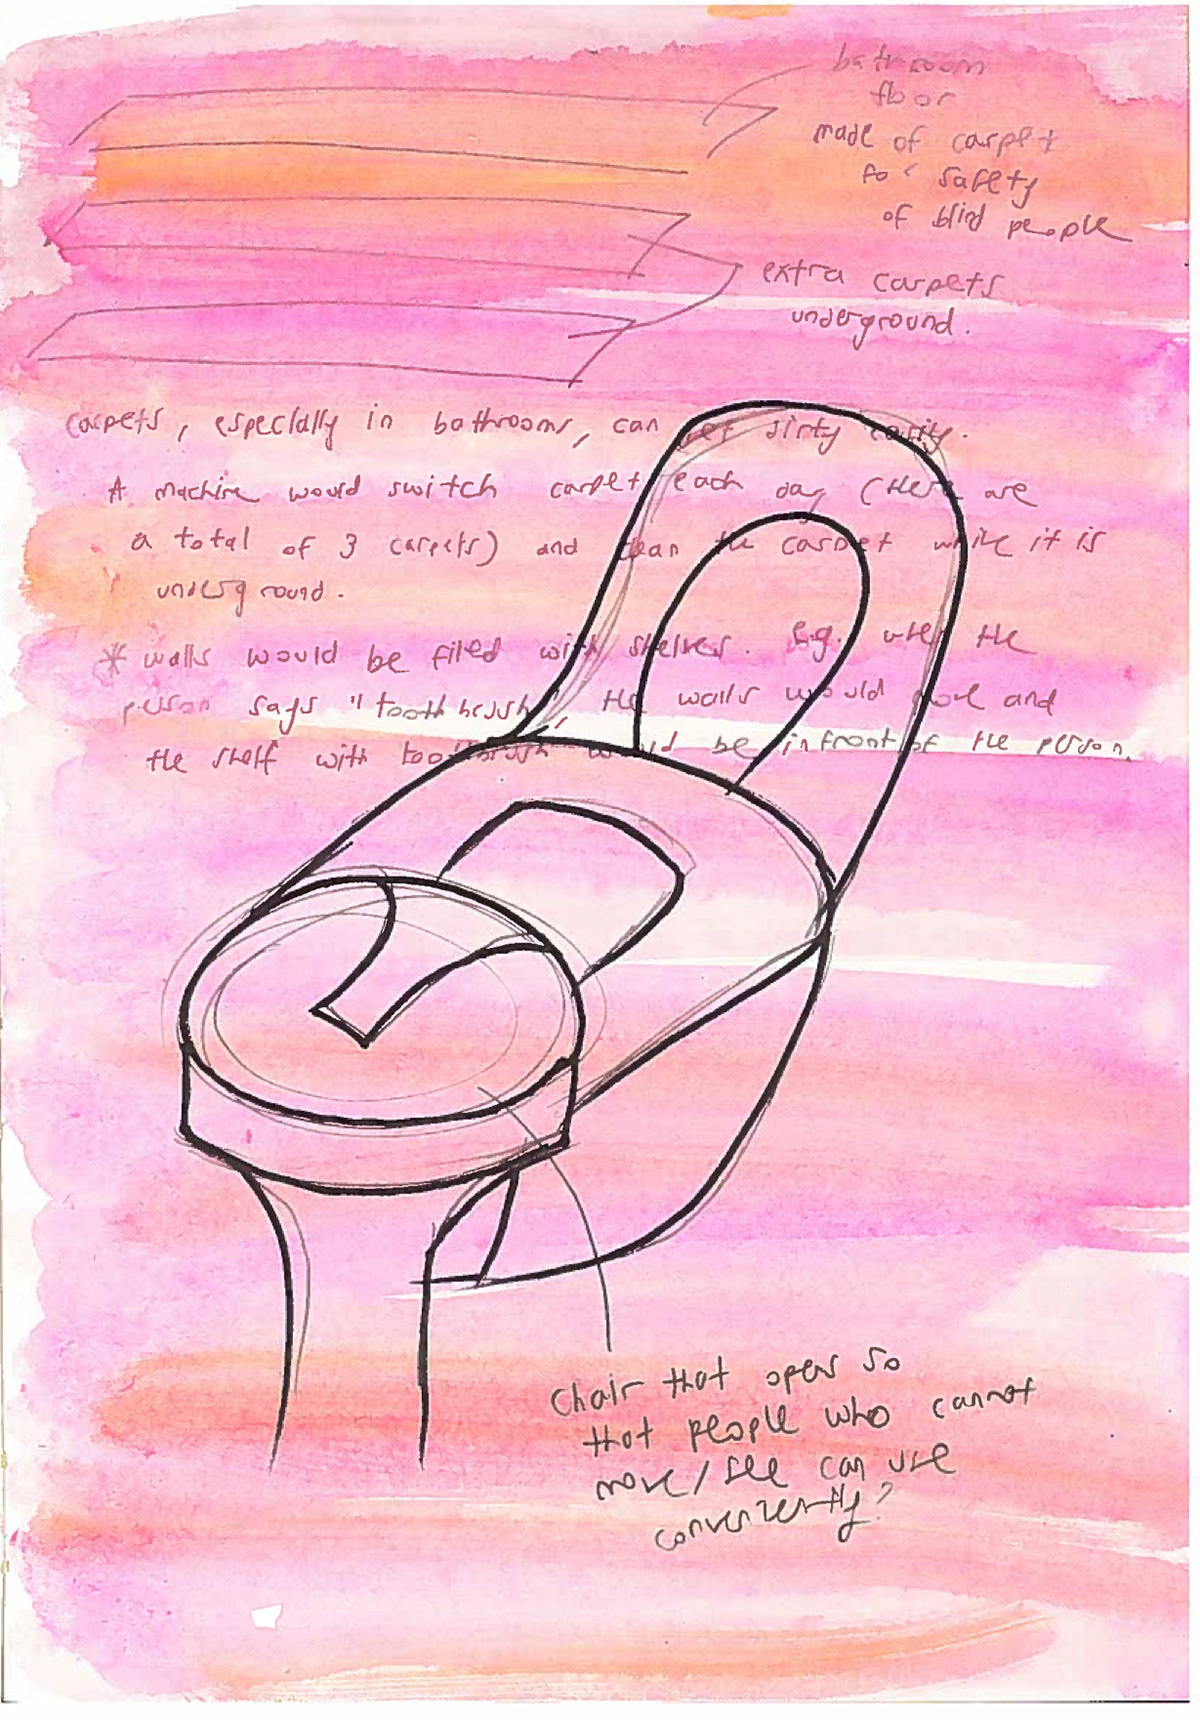 bathroom
floor
made of carpet
for safety
of blind people
extra carpets
underground.
carpets, especially in bathrooms, can get dirty easily.
A machine would switch carpet each day (there are
a total of 3 carpets) and clean the carpet while it is
underground.
* walls would be filed with shelves. E.g. when the
person says "toothbrush", the walls would move and
the shelf with toothbrush would be infront of the person.
Chair that opens so
that people who cannot
move/see can use
conveniently?